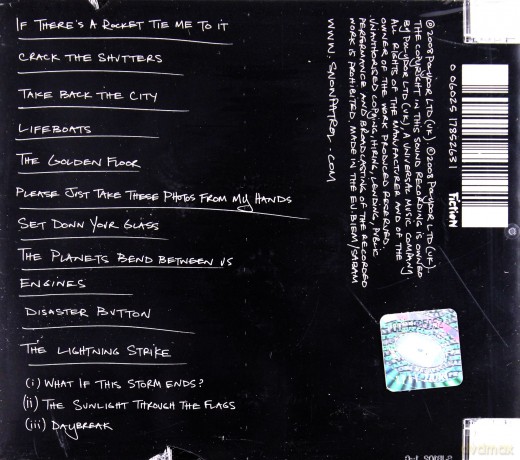 IF THERE'S A ROCKET TIE ME TO IT
CRACK THE SHUTTERS
TAKE BACK THE CITY
LIFEBOATS
THE GOLDEN FLOOR
PLEASE JUST TAKE THESE PHOTOS FROM MY HANDS
SET DOWN YOUR GLASS
THE PLANETS BEND BETWEEN US
ENGINES
DISASTER BUTTON
THE LIGHTNING STRIKE
(i) WHAT IF THIS STORM ENDS?
(ii) THE SUNLIGHT THROUGH THE FLAGS
(iii) DAYBREAK
℗2008 POLYDOR LTD (UK). ©2008 POLYDOR LTD (UK).
THE COPYRIGHT IN THIS SOUND RECORDING IS OWNED
BY POLYDOR LTD (UK). A UNIVERSAL MUSIC COMPANY
ALL RIGHTS OF THE MANUFACTURER AND OF THE
OWNER OF THE WORK PRODUCED RESERVED.
UNAUTHORISED COPYING, HIRING, LENDING, PUBLIC
PERFORMANCE AND BROADCASTING OF THE RECORDED
WORK IS PROHIBITED. MADE IN THE EU. BIEM/SABAM
WWW.SNOWPATROL.COM
0 06025 17852631
FICTION